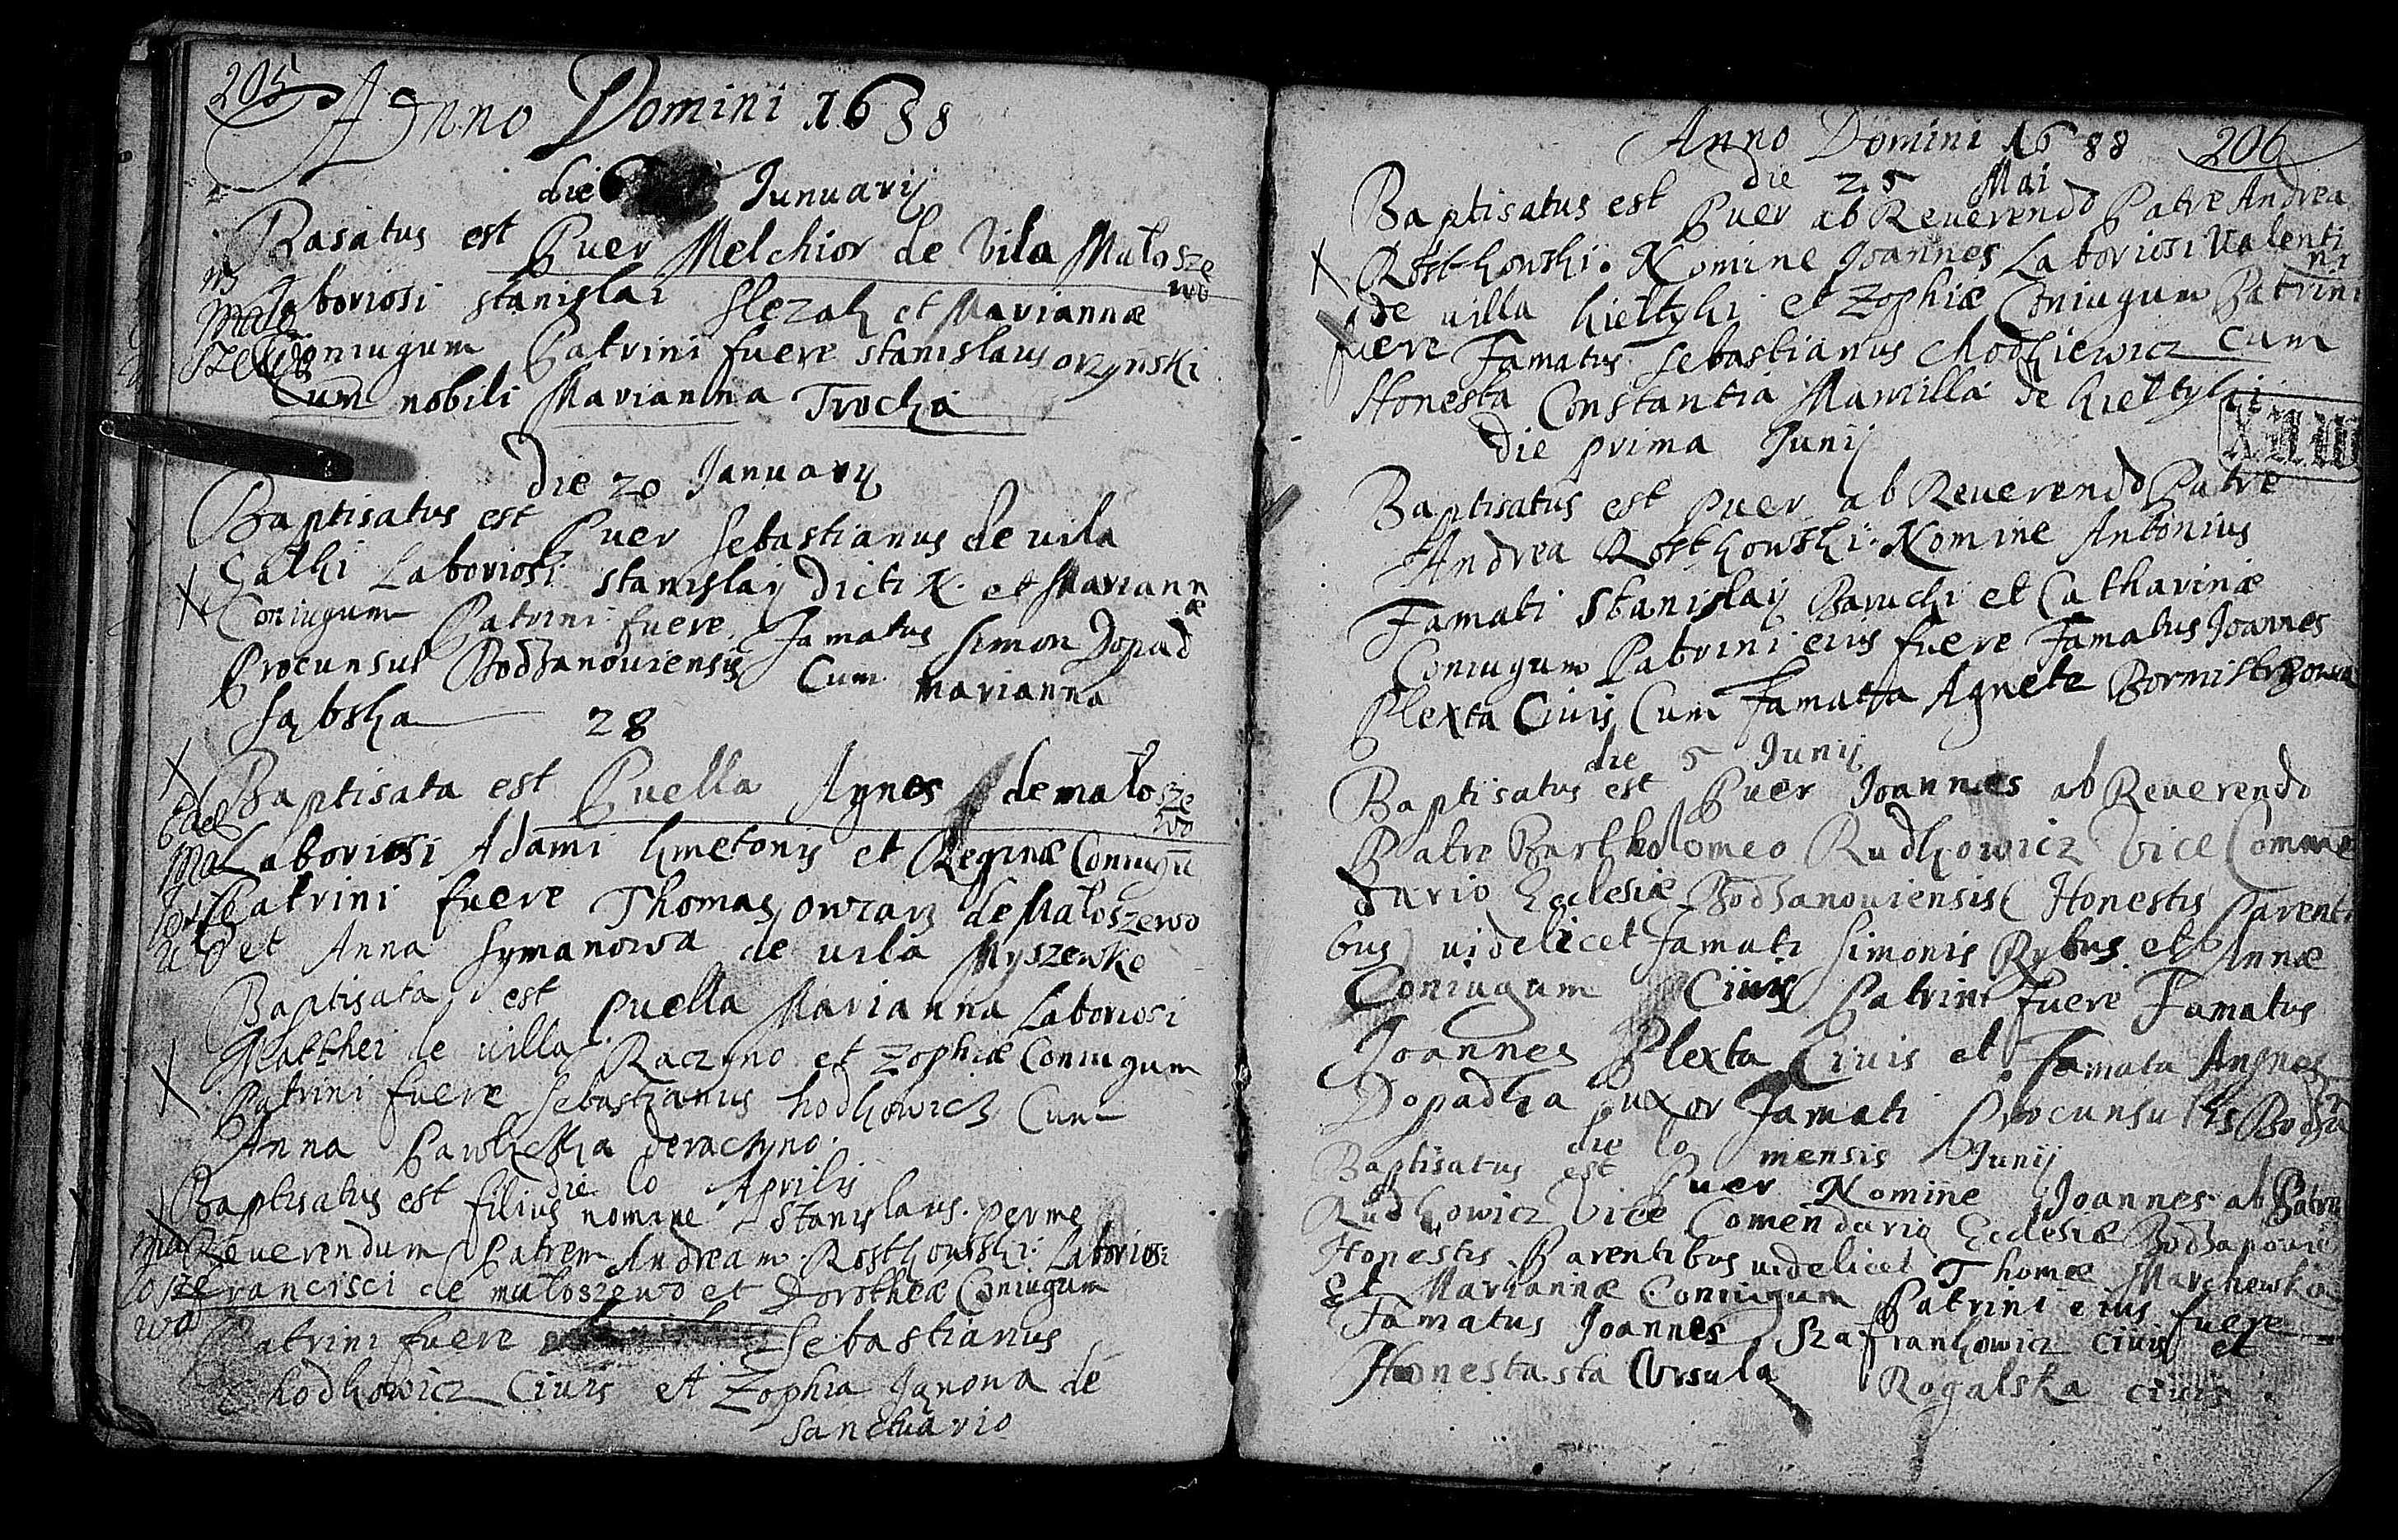 205
Anno Domini 1688
die 6 Iunuarij
Basatus est Puer Melchior de Vila Małosze
wo
Laboriosi stanislai slezak et Mariannæ
Coniugum Patrini fuere stanislaus orzynski
Cum nobili Marianna Trocka
die 20 Ianuarij
Baptisatus est Puer sebastianus de uila
Laboriosi stanislaij dicti K. et Mariann
æ
Coniugum Patrini fuere Famatus simon Dopad
Procunsul Bodzanouiensis Cum marianna
28
Baptisata est Puella Agnes de małosze
wo
Laboriosi Adami kmetonis et Reginæ Coniugū
Patrini fuere Thomas owczarz de Małoszewo
et Anna symanowa de uila Myszewke
Baptisata est puella Marianna Laboriosi
Matthei de uilla Raczyno et zophiæ Coniugum
Patrini fuere sebastianus hodkowicz Cum
Anna deraczyno.
die 10 Aprilis
Baptisatus est filius nomine stanislaus. per me
Reuerendum Patrem Andream Rostkowski. Laboriosi
Francisci de małoszewo et Dorotheæ Coniugum
Patrini fuere sebastianus
Chodkowicz Ciuis et zophia Janowa de
sanctuario
Anno Domini 1688 206
die 25 Mai
Baptisatus est Puer ab Reuerendo Patre Andrea
Rostkowski. Nomine Joannes Laboriosi Valenti
ni
de uilla kieltyki et zophiæ Coniugum Patrini
fuere Famatus sebastianus chodkiewicz cum
Honesta Constantia de kieltyki
die prima Junij
Baptisatus est puer ab Reuerendo Patre
Andrea Rostkowski. Nomine Antonius
Famati stanislaij Baruchi et Catharinæ
Coniugum Patrini eius fuere Famatus Joannes
Plexta Ciuis Cum Famata Agnete Bormistrzowa
die 5 Iunij
Baptisatus est Puer Joannes ab Reuerendo
Patre Bartholomeo Rudkowicz Vice Comme
dario Ecclesiæ Bodzanouiensis Honestis Parenti
bus uidelicet famati simonis Rybus et Annæ
Coniugum Ciuis Patrini fuere Famatus
Joannes Plexta Ciuis et Famata Angnes
Dopadka uxor Famati Procunsulis Bodza
die 10 mensis Junij
Baptisatus est Puer Nomine Joannes ab Patre
Rudkowicz Vice Comendario Ecclesiæ Bodzanouie
Honestis Parentibus uidelicet Thomæ
Et Mariannæ Coniugum Patrini eius fuere
Famatus Joannes Szafrankowicz Ciuis et
Honestasta Vrsula Rogalska ciuis.